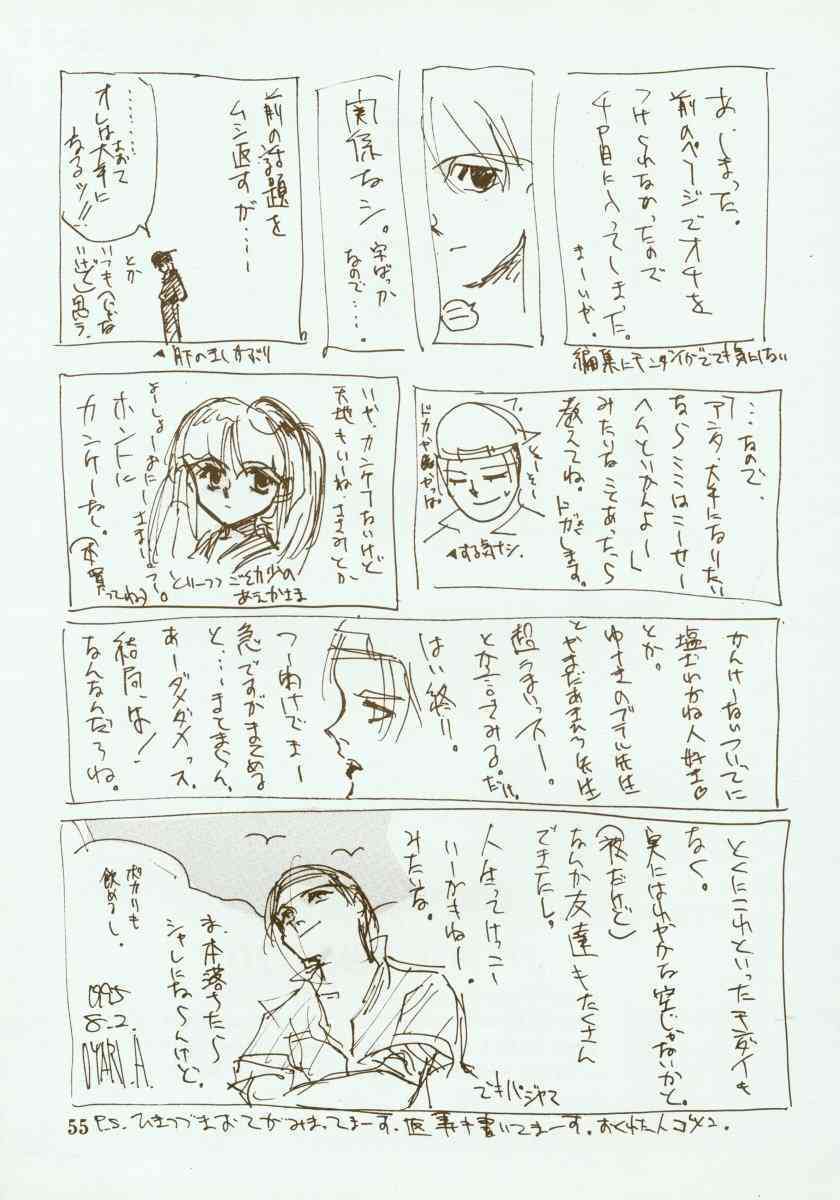 あ、しまった。
前のページでオチを
つけられなかったので
4P目に入ってしまった。
まーいや。
編集にモンダイがでても気にしない
関係ナシ。
字ばっか
なので…。
前の話題を
ムシ返すが…ー
………
オレは大手に
なるッ!!
とか
いつも
思う。
…なので、
「アンタ、大手になりたい
ならミミはこーせー
へんといかんよー」
みたいなことあったら
教えてね。
ドガします。
する気ナシ
いや、カンケーないけど
天地もいーね、ささみとか
ホントに
カンケーねー。
本買ってねう
ご幼少の
あえかさま
かんけーないついでに
とか。
ゆうきのブラル先生
とやまだあきひろ先生
超うまいっスー。
とか言ってみる。だけ。
はい終り。
つーわけでまー
急ですがまとめる
と…まてまくらん、
あーダメダメっス。
結局、は!
なんなんだろね。
とくにこれといったモンダイも
なく。
実にさわやかな空じゃないかと。
(夜だけど)
なんか友達もたくさん
できたし。
人生ってけっこー
いーかもねー。
みたいな。
ま、本落ちたら
シャレにならんけど。
ポカリも
飲めるし。
1995
8.2.
OYARI.A.
できパジャマ
P.S.ひきつづきおてがみまってまーす。返事も書いてまーす。おくれた人ゴメン.
55